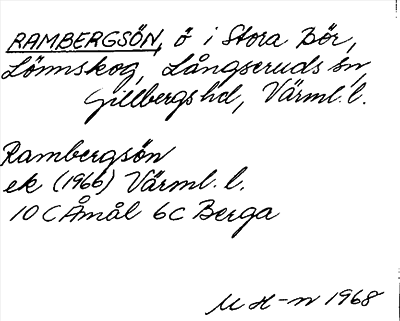 RAMBERGSÖN, ö i Stora Bör,
Lönnskog, Långseruds sn,
Gillbergs hd, Värml. l.
Rambergsön
ek (1966) Värml. l.
10C Åmål 6C Berga
M H-n 1968